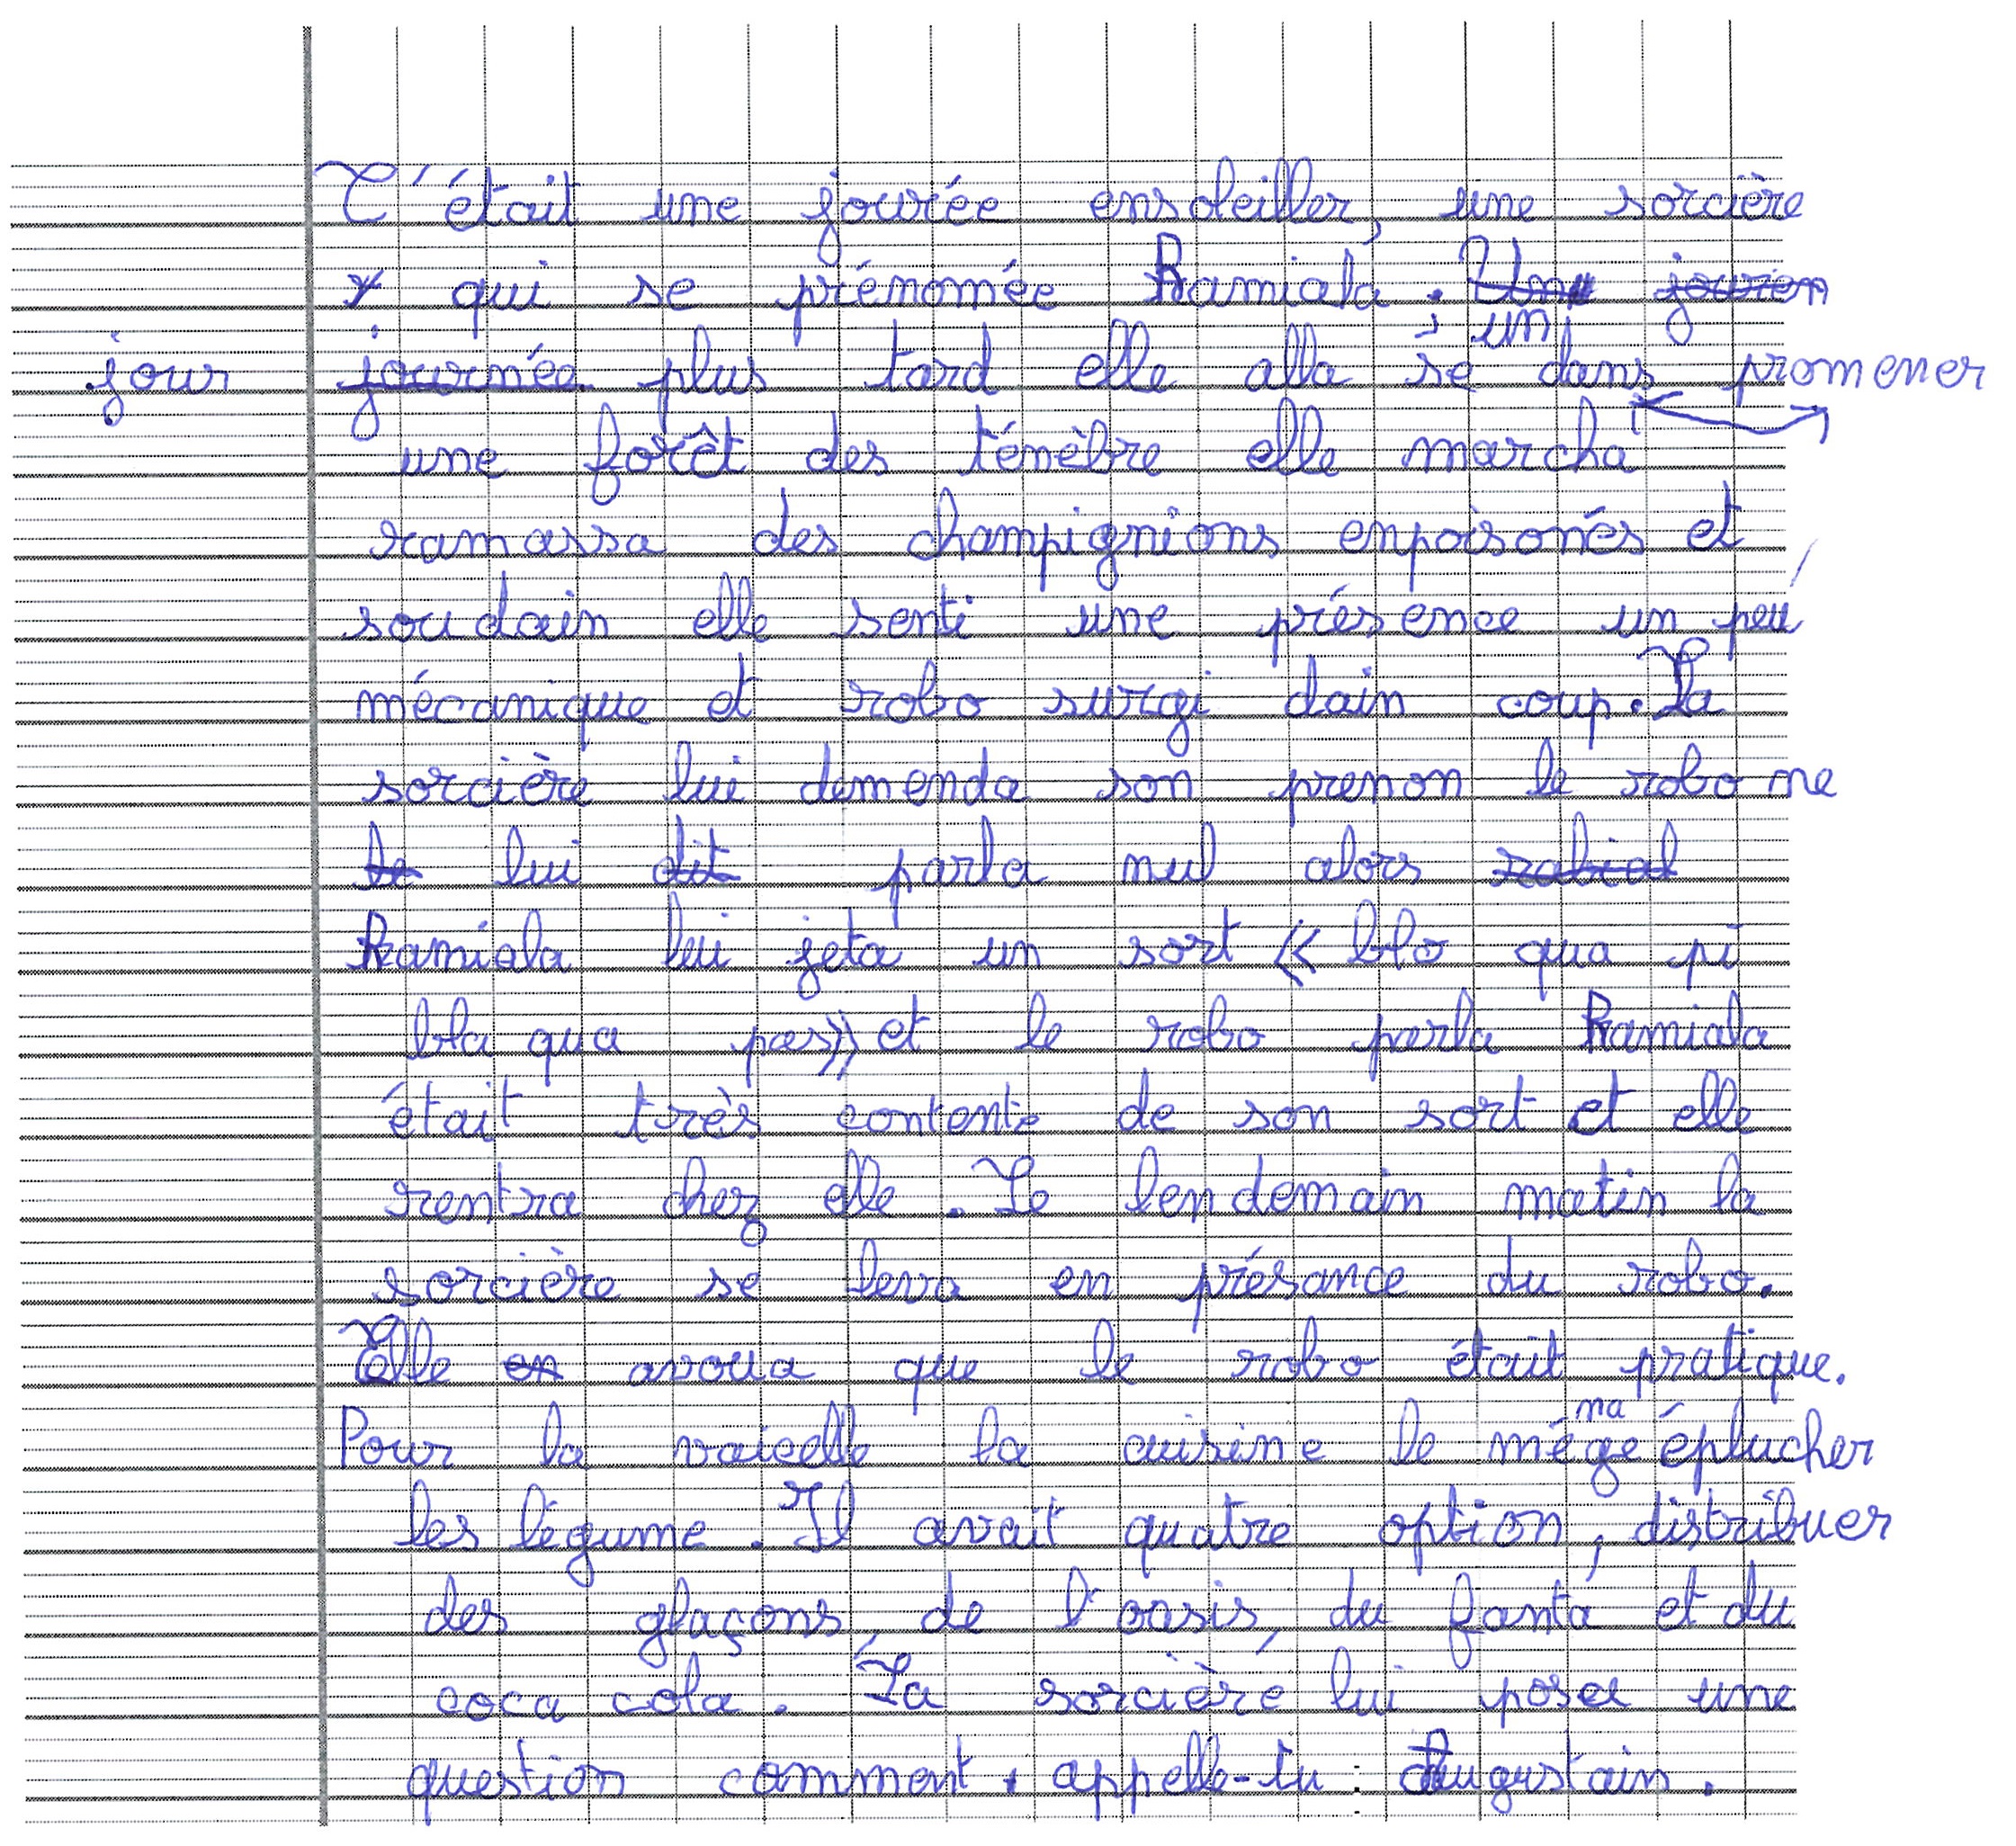 C'était une jourée ensoleiller, une sorcière
qui se prénomée Ramiala. Une jouren
; un
jour journée plus tard elle alla se dans promener
une forêt des ténèbre elle marcha
ramassa des champignions enpoisonés et
soudain elle senti une présence un peu
mécanique et robo surgi dain coup. La
sorcière lui demenda son prenon le robo ne
le lui dit parla nul alors rabial
Ramiala lui jeta un sort « blo qua pi
bla qua pas» et le robo parla Ramiala
était très contente de son sort et elle
rentra chez elle. Le lendemain matin la
sorcière se leva en présance du robo.
Elle on avoua que le robo était pratique.
na
Pour la vaicelle la cuisine le mége éplucher
les légume. Il avait quatre option, distribuer
des glaçons, de l'oasis, du fanta et du
coca cola. La sorcière lui posa une
question comment appelle-tu : Augustain.